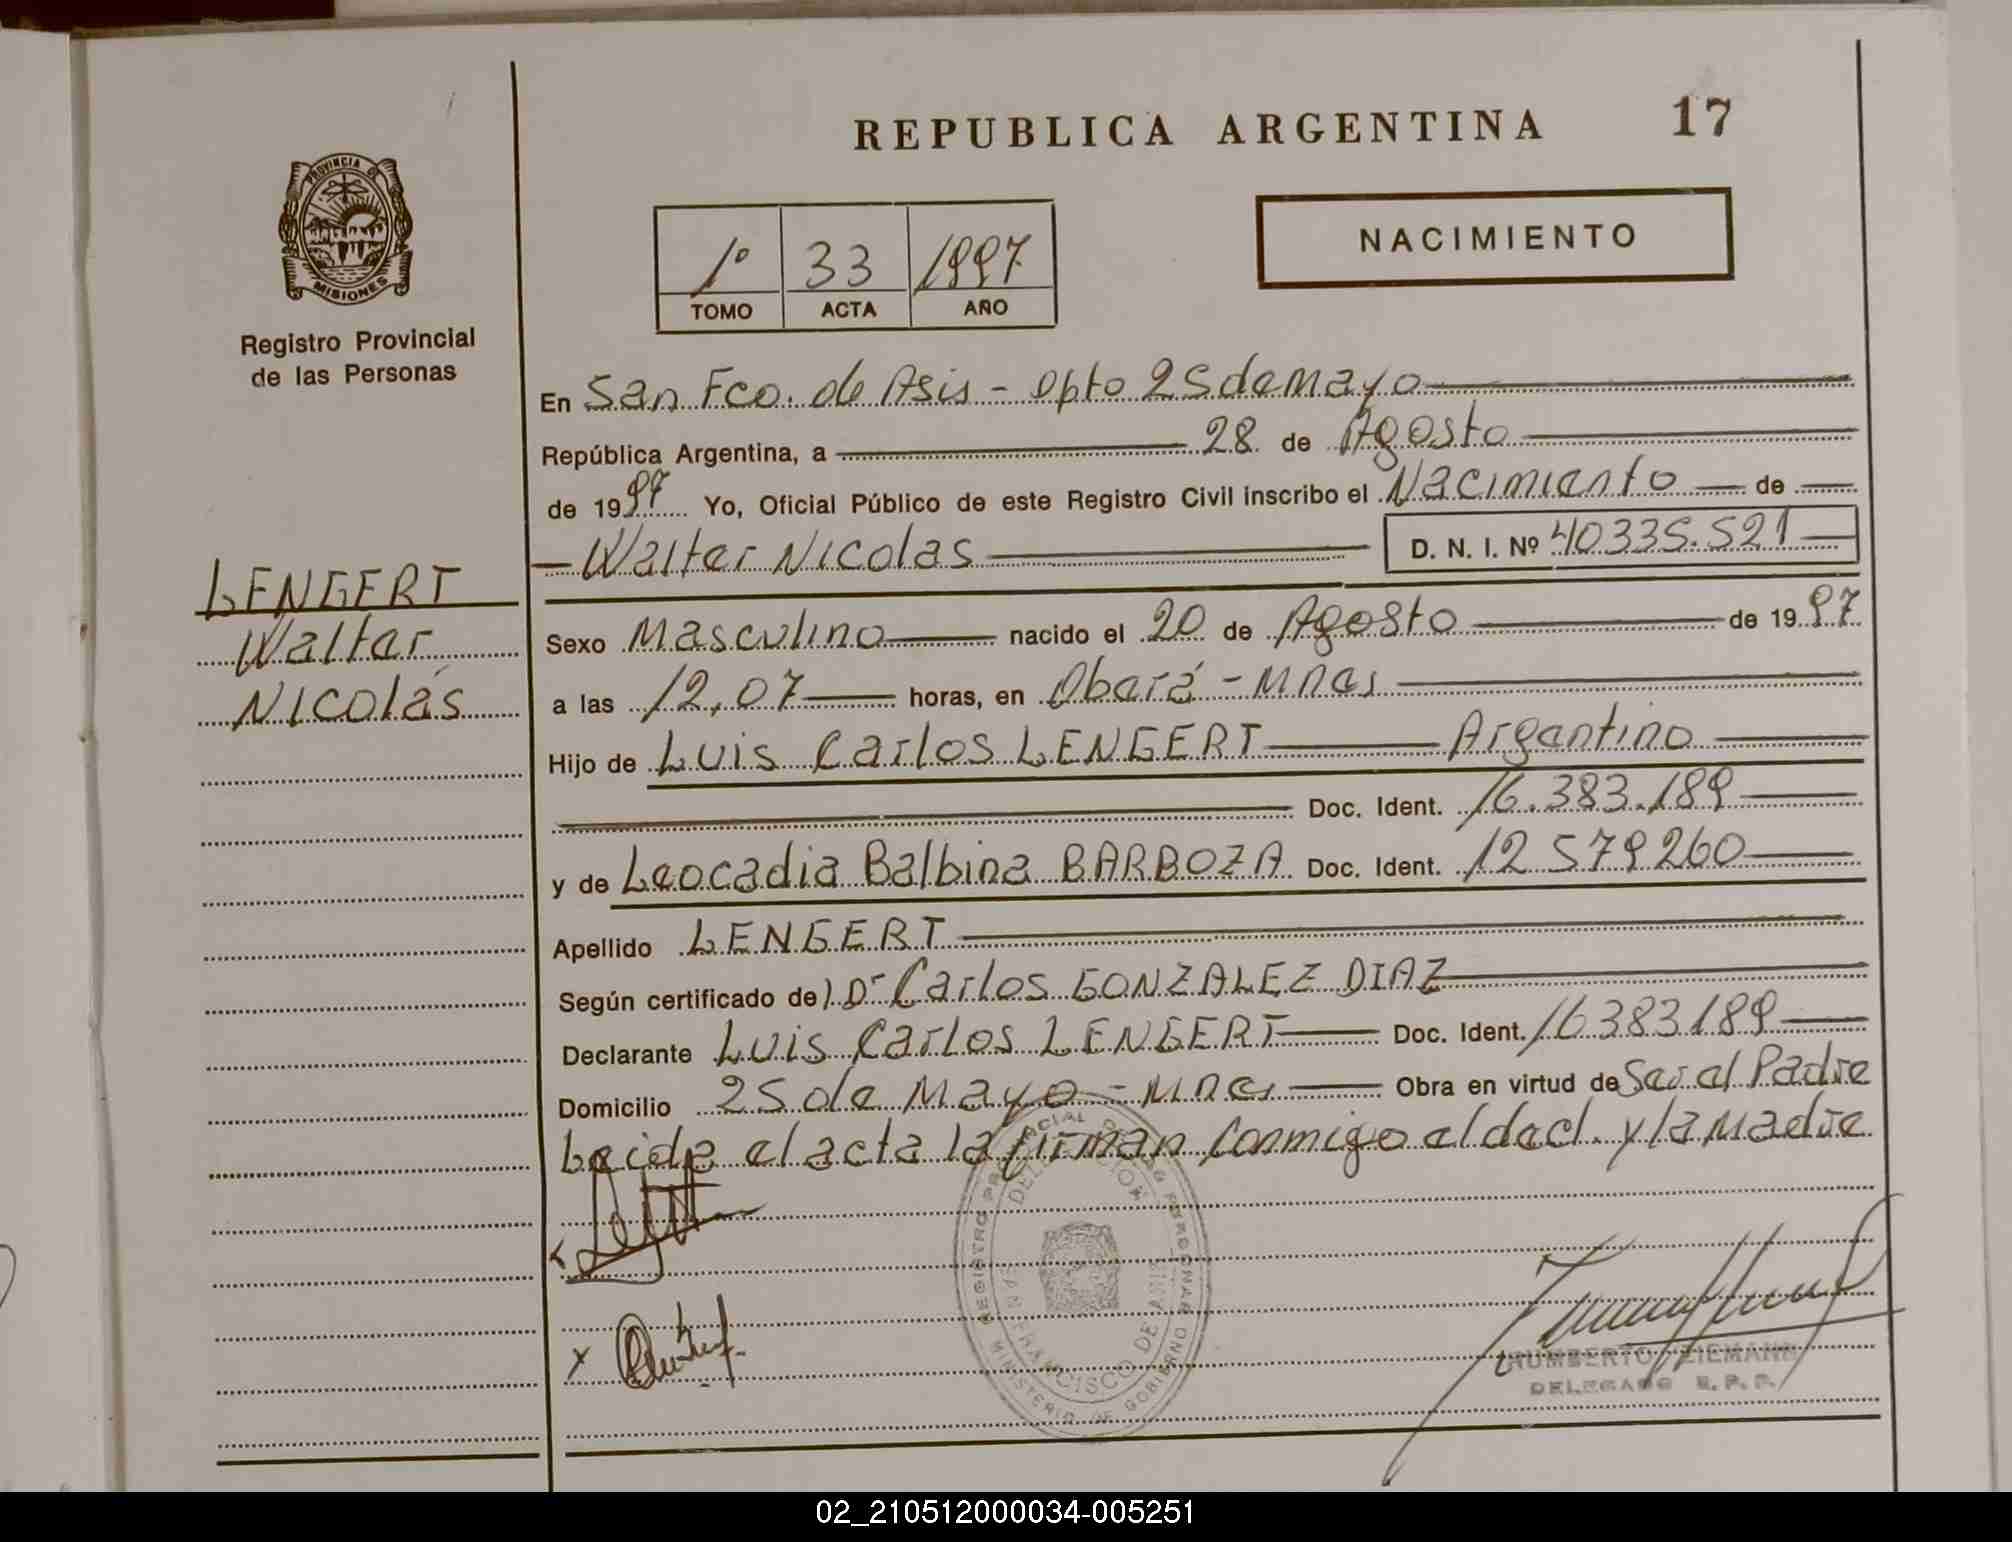 REPUBLICA ARGENTINA 17
PROVINCIA DE
MISIONES
Registro Provincial
de las Personas
1º 33 1997
TOMO ACTA AÑO
NACIMIENTO
En San Fco. de Asis - Dpto 25 de Mayo
República Argentina, a 28 de Agosto
de 1997 Yo, Oficial Público de este Registro Civil inscribo el Nacimiento de
Walter Nicolas D. N. I. Nº 40335.521
LENGERT
Walter
Nicolás
Sexo Masculino nacido el 20 de Agosto de 1997
a las 12,07 horas, en Oberá - Mnes
Hijo de Luis Carlos LENGERT Argentino
Doc. Ident. 16.383.189
y de Leocadia Balbina BARBOZA Doc. Ident. 12 579260
Apellido LENGERT
Según certificado de) Dr Carlos GONZALEZ DIAZ
Declarante Luis Carlos LENGERT Doc. Ident. 16383189
Domicilio 25 de Mayo - Mnes Obra en virtud de Ser el Padre
Leida el acta la firman conmigo el decl. y la Madre
REGISTRO PROVINCIAL DE LAS PERSONAS
MINISTERIO DE GOBIERNO
SAN FRANCISCO DE ASIS
HUMBERTO ZIEMANN
DELEGADO R. P. P.
02_210512000034-005251